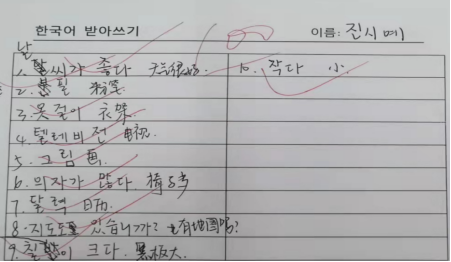 한국어 받아쓰기
이름: 진시예
날
1. 날씨가 좋다 天气很好.
2. 분필 粉笔
3. 옷걸이 衣架
4. 텔레비전 电视.
5. 그림 画.
6. 의자가 많다. 椅子多
7. 달력 日历.
8. 지도도 있습니까? 也有地图吗?
9. 칠판이 크다. 黑板大.
10. 작다 小.